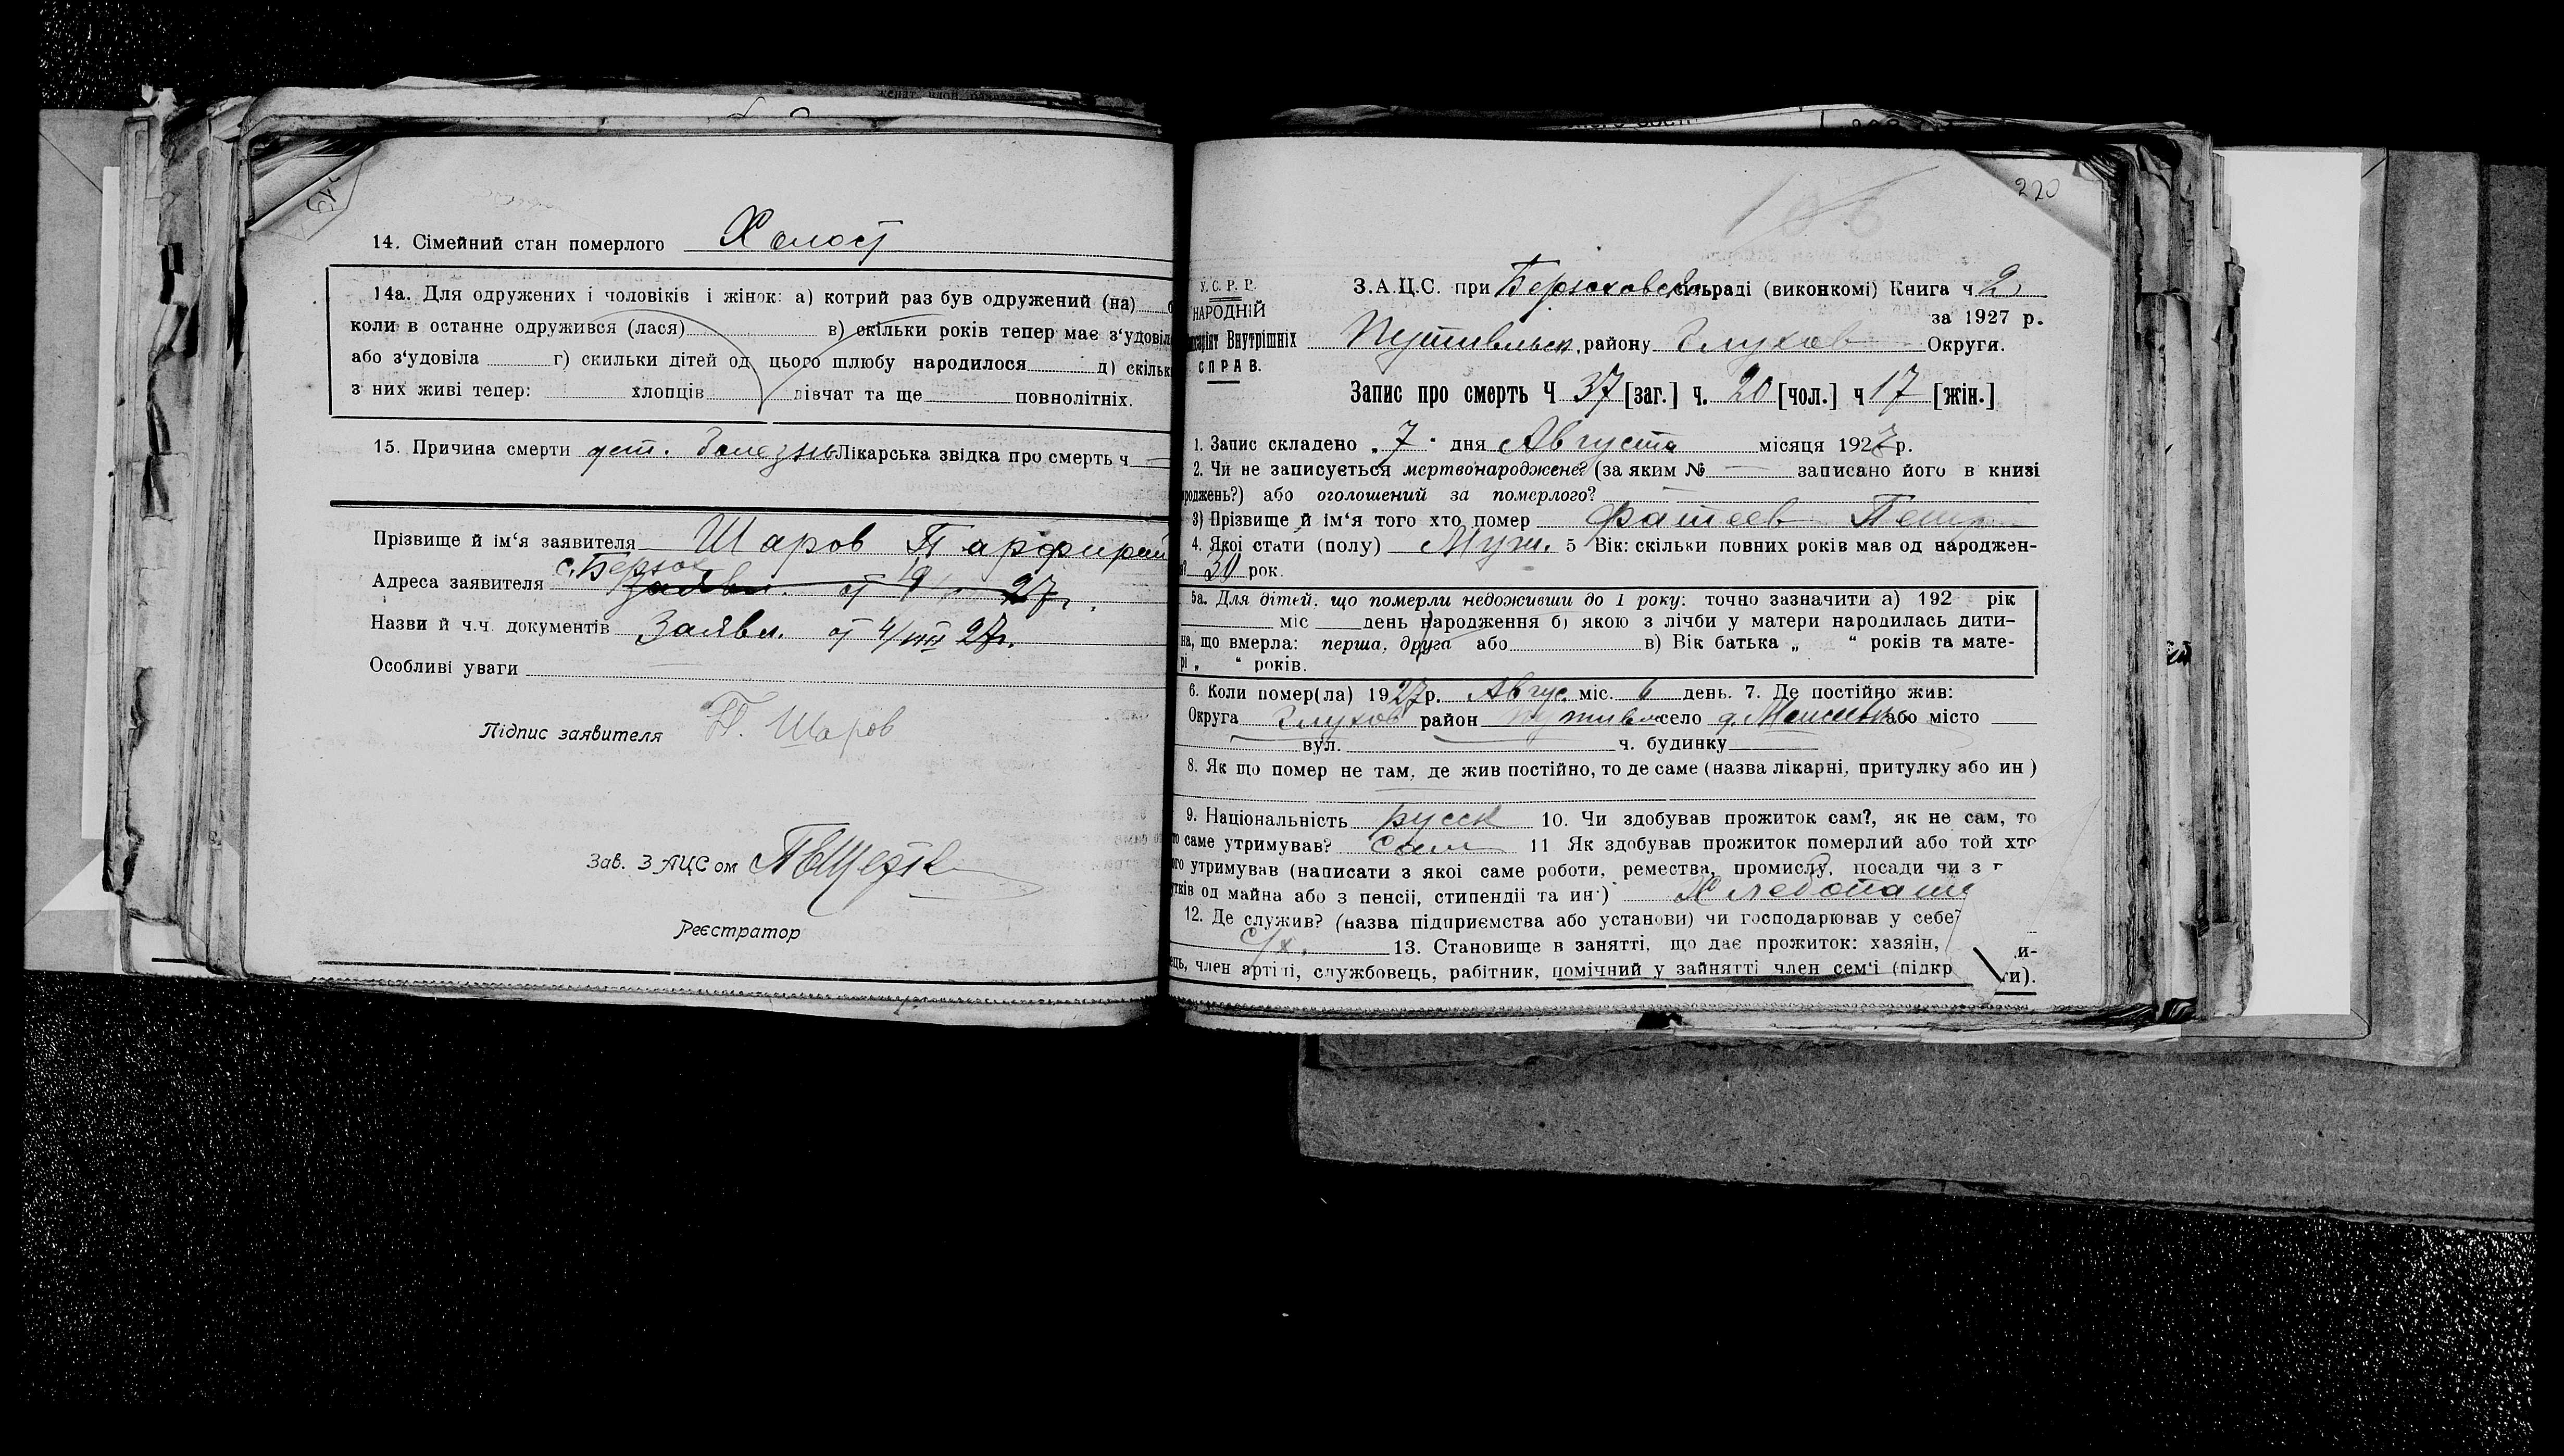 14. Сімейний стан померлого Холост
14а. Для одружених і чоловіків і жінок: а) котрий раз був одружений (на)
коли в останне одружився (лася) в) скільки років тепер має з'удовіл
або з'удовіла г) скильки дітей од цього шлюбу народилося д) скільк
з них живі тепер: хлопців дівчат та ще повнолітніх.
15. Причина смерти дет. болезнь Лікарська звідка про смерть ч
Прізвище й ім'я заявителя Шаров Парфирий
с. Берюх
Адреса заявителя Заявл. от 27
Назви й ч.ч. документів Заявл. от 4/VIII 27г.
Особливі уваги
Підпис заявителя П. Шаров
Зав. ЗАЦСом
Реєстратор
220
У. С. Р. Р.
НАРОДНІЙ
Внутрішніх
СПРАВ.
З.А.Ц.С. при Берюховск сільраді (виконкомі) Книга ч 2
за 1927 р.
Путивльск. району Глухов Округи.
Запис про смерть Ч 37 [заг.] ч. 20 [чол.] ч 17 [жін.]
1. Запис складено „7" дня Августа місяця 1927 р.
2. Чи не записується мертвонароджене? (за яким № — записано його в книзі
роджень?) або оголошений за померлого?
3) Прізвище й ім'я того хто помер Фатеев Петр
4. Якої стати (полу) Муж. 5 Вік: скільки повних років мав од народжен-
30 рок.
5а. Для дітей, що померли недоживши до 1 року: точно зазначити а) 192 рік
міс день народження б) якою з лічби у матери народилась дити-
на, що вмерла: перша, друга або в) Вік батька „ " років та мате-
рі „ " років.
6. Коли помер(ла) 1927 р. Авгус міс. 6 день. 7. Де постійно жив:
Округа Глухов район Путивл село або місто
вул. ч. будинку
8. Як що помер не там, де жив постійно, то де саме (назва лікарні, притулку або ин)
9. Національність русск 10. Чи здобував прожиток сам?, як не сам, то
саме утримував? Сам 11 Як здобував прожиток померлий або той хто
утримував (написати з якої саме роботи, ремества, промислу, посади чи з
од майна або з пенсії, стипендії та ин.) Хлебопаш
12. Де служив? (назва підприємства або установи) чи господарював у себе?
с/х. 13. Становище в занятті, що дає прожиток: хазяін, и-
ець, член артілі, службовець, рабітник, помічний у зайнятті член сем'ї (підкр ти).